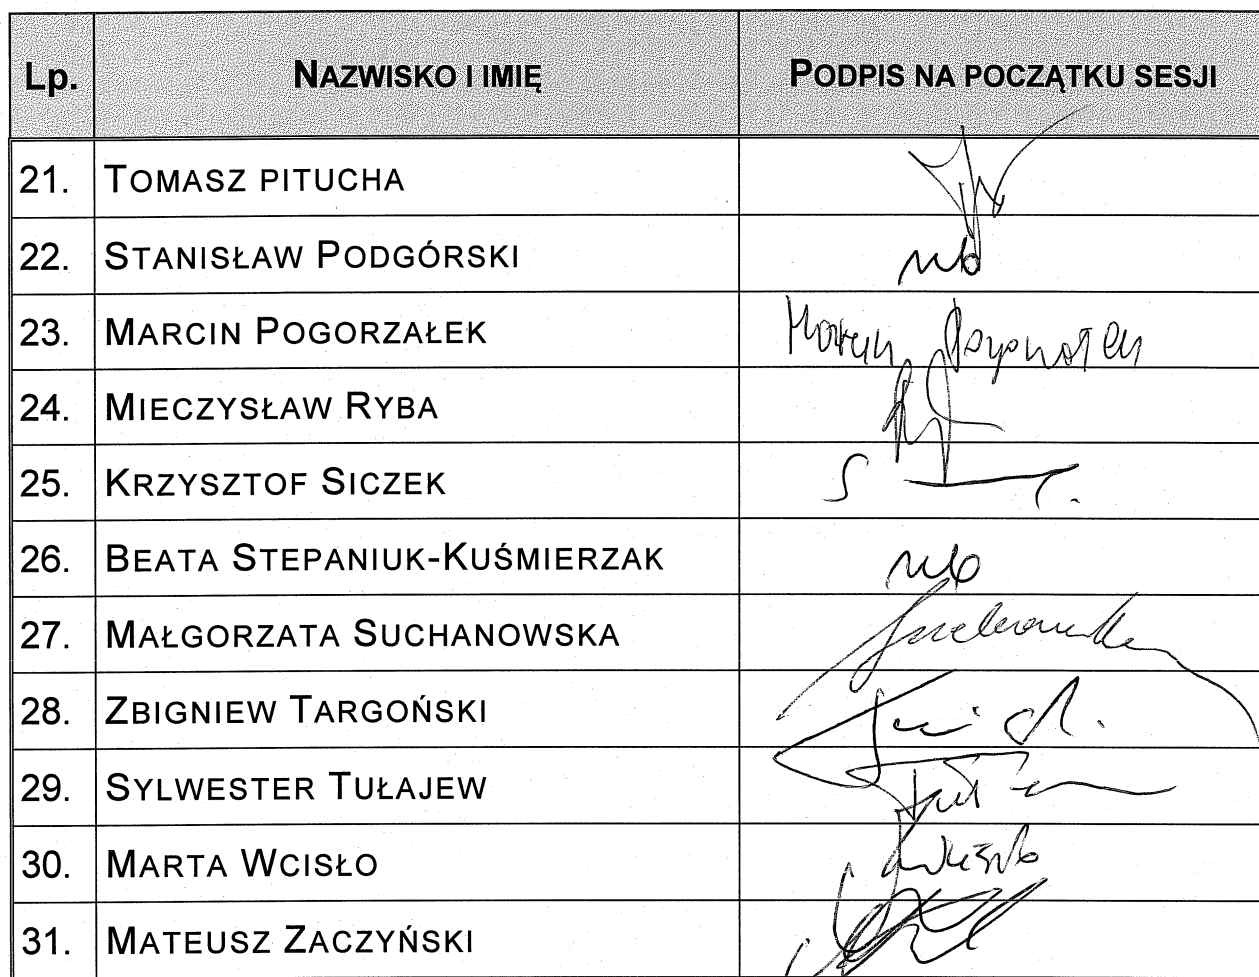 Lp. NAZWISKO I IMIĘ PODPIS NA POCZĄTKU SESJI
21. TOMASZ PITUCHA
22. STANISŁAW PODGÓRSKI nb
23. MARCIN POGORZAŁEK Marcin Pogorzałek
24. MIECZYSŁAW RYBA
25. KRZYSZTOF SICZEK
26. BEATA STEPANIUK-KUŚMIERZAK nb
27. MAŁGORZATA SUCHANOWSKA
28. ZBIGNIEW TARGOŃSKI
29. SYLWESTER TUŁAJEW
30. MARTA WCISŁO
31. MATEUSZ ZACZYŃSKI